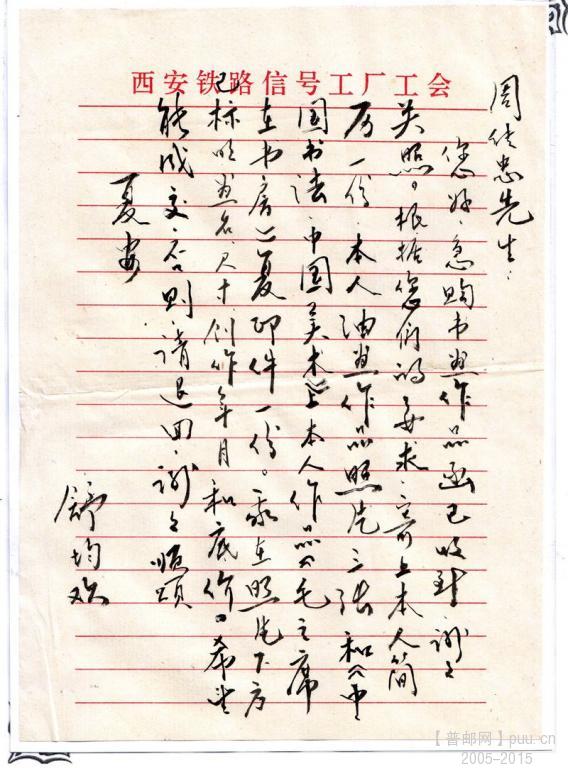 西安铁路信号工厂工会
周佳忠先生:
您好,急购书画作品函已收到,谢谢
关照。根据您们的要求,寄上本人简
历一份,本人油画作品照片三张和《中
国书法·中国美术》上本人作品《毛主席
在书房》复印件一份。我在照片下方
已标明画名、尺寸、创作年月和底价。希望
能成交,否则请退回,谢谢 顺颂
夏安
舒均欢
【普邮网】puu.cn
2005-2015